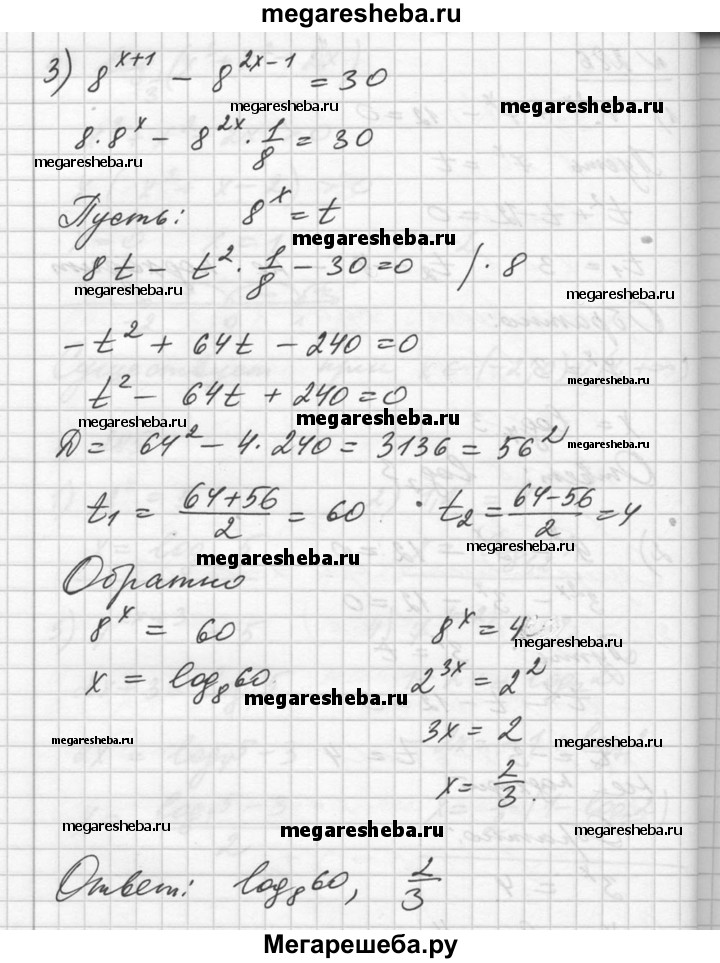 megaresheba.ru
3) 8^{x+1} - 8^{2x-1} = 30
megaresheba.ru megaresheba.ru
8·8^x - 8^{2x}·1/8 = 30
megaresheba.ru megaresheba.ru
Пусть: 8^x = t
megaresheba.ru
8t - t^2·1/8 - 30 = 0 /·8
megaresheba.ru megaresheba.ru
-t^2 + 64t - 240 = 0
t^2 - 64t + 240 = 0
megaresheba.ru
megaresheba.ru megaresheba.ru
D = 64^2 - 4·240 = 3136 = 56^2
megaresheba.ru
t_1 = (64+56)/2 = 60 · t_2 = (64-56)/2 = 4
megaresheba.ru megaresheba.ru
Обратно
8^x = 60 8^x = 4
megaresheba.ru
x = log_8 60 2^{3x} = 2^2
megaresheba.ru megaresheba.ru
3x = 2
megaresheba.ru megaresheba.ru
x = 2/3.
megaresheba.ru megaresheba.ru megaresheba.ru
Ответ: log_8 60, 2/3
Мегарешеба.ру